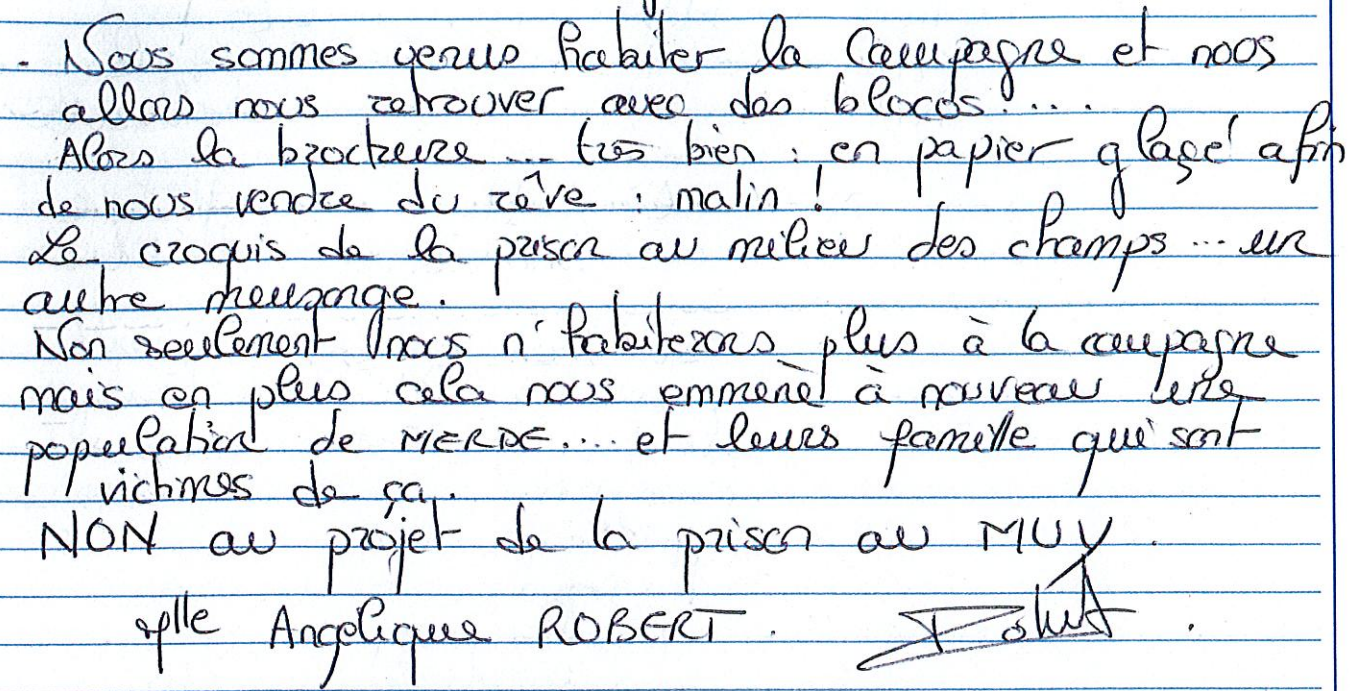 - Nous sommes venus habiter la Campagne et nous
allons nous retrouver avec des blocos!...
Alors la brochure... très bien : en papier glaçé afin
de nous vendre du rêve : malin !
Le croquis de la prison au milieu des champs... un
autre mensonge.
Non seulement nous n'habiterons plus à la campagne
mais en plus cela nous emmène à nouveau une
population de MERDE.... et leurs famille qui sont
victimes de ça.
NON au projet de la prison au MUY.
Mlle Angelique ROBERT.